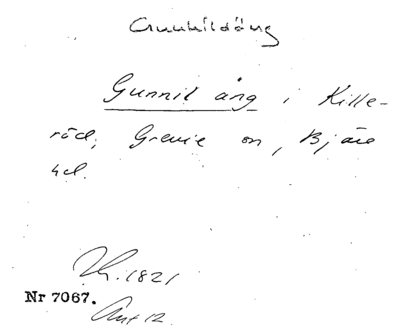 Gunnildäng
Gunnil äng i Kille-
röd, Grevie sn, Bjäre
hd.
1821
Nr 7067.
Ant 12